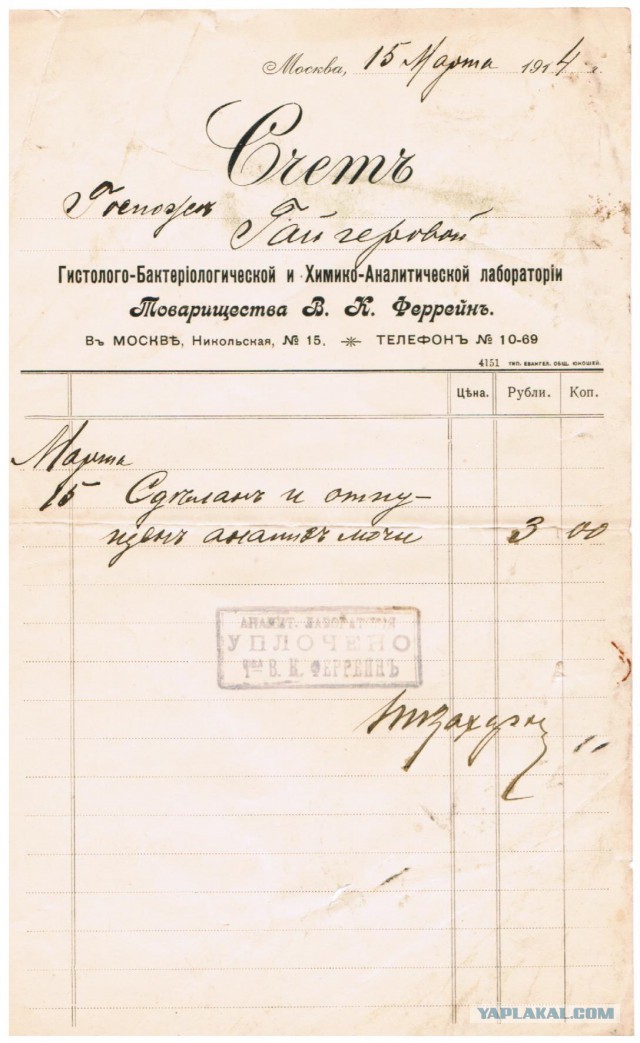 Москва, 15 Марта 1914 г.
Счетъ
Госпожѣ
Гайгеровой
Гистолого-Бактеріологической и Химико-Аналитической лабораторіи
Товарищества В. К. Феррейнъ.
Въ МОСКВѢ, Никольская, № 15. ТЕЛЕФОНЪ № 10-69
4151 ТИП. ЕВАНГЕЛ. ОБЩ. ЮНОШЕЙ.
Цѣна. Рубли. Коп.
Марта
15 Сдѣланъ и отпу-
щенъ анализъ мочи 3 00
АНАЛИТ. ЛАБОРАТОРІЯ
УПЛОЧЕНО
Т-ва В. К. ФЕРРЕЙНЪ
YAPLAKAL.COM